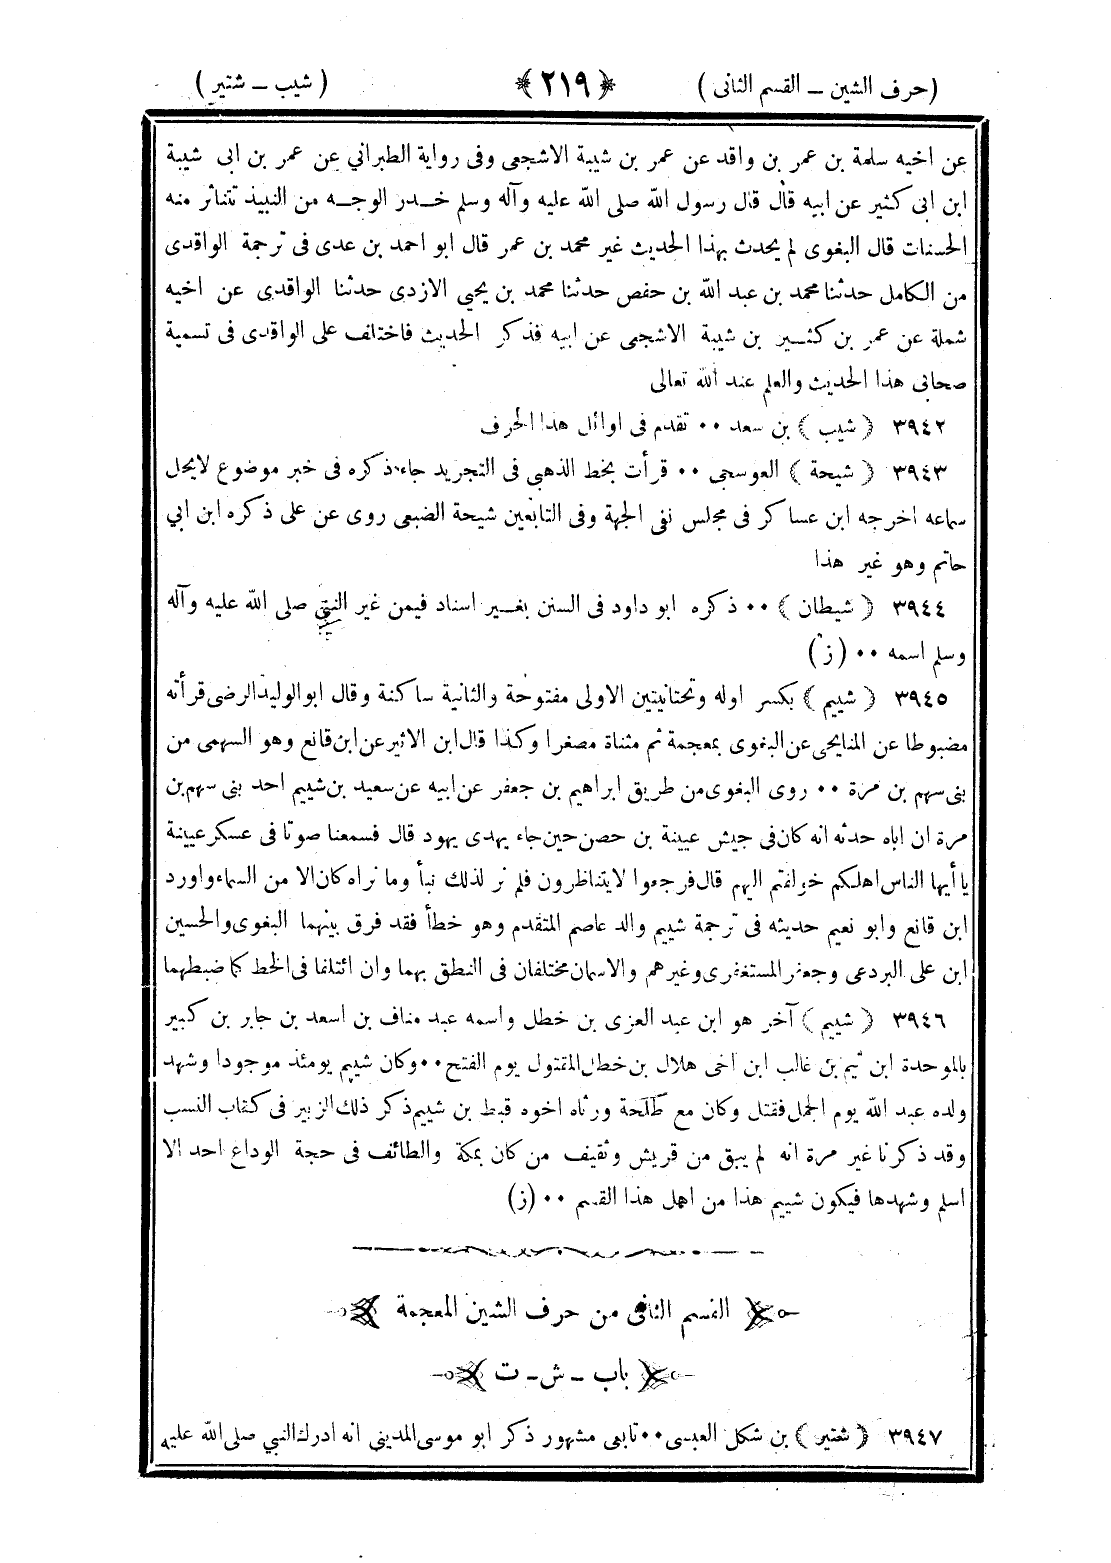 (حرف الشين – القسم الثانى) ﴿ ٢١٩ ﴾ (شيب – شتير)
عن اخيه سلمة بن عمر بن واقد عن عمر بن شيبة الاشجعى وفى رواية الطبراني عن عمر بن ابى شيبة
ابن ابى كثير عن ابيه قال قال رسول الله صلى الله عليه وآله وسلم خدر الوجه من النبيذ تتناثر منه
الحسنات قال البغوى لم يحدث بهذا الحديث غير محمد بن عمر قال ابو احمد بن عدى فى ترجمة الواقدى
من الكامل حدثنا محمد بن عبد الله بن حفص حدثنا محمد بن يحيي الازدى حدثنا الواقدى عن اخيه
شملة عن عمر بن كثير بن شيبة الاشجعى عن ابيه فذكر الحديث فاختلف على الواقدى فى تسمية
صحابى هذا الحديث والعلم عند الله تعالى
٣٩٤٢ ﴿ شيب ﴾ بن سعد ٠٠ تقدم فى اوائل هذا الحرف
٣٩٤٣ ﴿ شيحة ﴾ العوسجى ٠٠ قرأت بخط الذهبي فى التجريد جاء ذكره فى خبر موضوع لايحل
سماعه اخرجه ابن عساكر فى مجلس نفى الجهة وفى التابعين شيحة الضبعى روى عن على ذكره ابن ابي
حاتم وهو غير هذا
٣٩٤٤ ﴿ شيطان ﴾ ٠٠ ذكره ابو داود فى السنن بغير اسناد فيمن غير النبي صلى الله عليه وآله
وسلم اسمه ٠٠ (ز)
٣٩٤٥ ﴿ شييم ﴾ بكسر اوله وتحتانيتين الاولى مفتوحة والثانية ساكنة وقال ابوالوليد الرضى قرأته
مضبوطا عن المنايحى عن البغوى بمعجمة ثم مثناة مصغرا وكذا قال ابن الاثير عن ابن قانع وهو السهمى من
بنى سهم بن مرة ٠٠ روى البغوى من طريق ابراهيم بن جعفر عن ابيه عن سعيد بن شييم احد بنى سهم بن
مرة ان اباه حدثه انه كان فى جيش عيينة بن حصن حين جاء يهدى يهود قال فسمعنا صوتا فى عسكر عيينة
يا أيها الناس اهلكم خولفتم اليهم قال فرجعوا لا يتناظرون فلم نر لذلك نبأ وما نراه كان الا من السماء واورد
ابن قانع وابو نعيم حديثه فى ترجمة شييم والد عاصم المتقدم وهو خطأ فقد فرق بينهما البغوى والحسين
ابن على البردعى وجعفر المستغفرى وغيرهم والاسمان مختلفان فى النطق بهما وان ائتلفا فى الخط كما ضبطهما
٣٩٤٦ ﴿ شييم ﴾ آخر هو ابن عبد العزى بن خطل واسمه عبد مناف بن اسعد بن جابر بن كبير
بالموحدة ابن تيم بن غالب ابن اخى هلال بن خطل المقتول يوم الفتح ٠٠ وكان شييم يومئذ موجودا وشهد
ولده عبد الله يوم الجمل فقتل وكان مع طلحة ورثاه اخوه قبط بن شييم ذكر ذلك الزبير فى كتاب النسب
وقد ذكرنا غير مرة انه لم يبق من قريش وثقيف من كان بمكة والطائف فى حجة الوداع احد الا
اسلم وشهدها فيكون شييم هذا من اهل هذا القسم ٠٠ (ز)
القسم الثانى من حرف الشين المعجمة
باب – ش – ت
٣٩٤٧ ﴿ شتير ﴾ بن شكل العبسى ٠٠ تابعى مشهور ذكر ابو موسى المدينى انه ادرك النبي صلى الله عليه